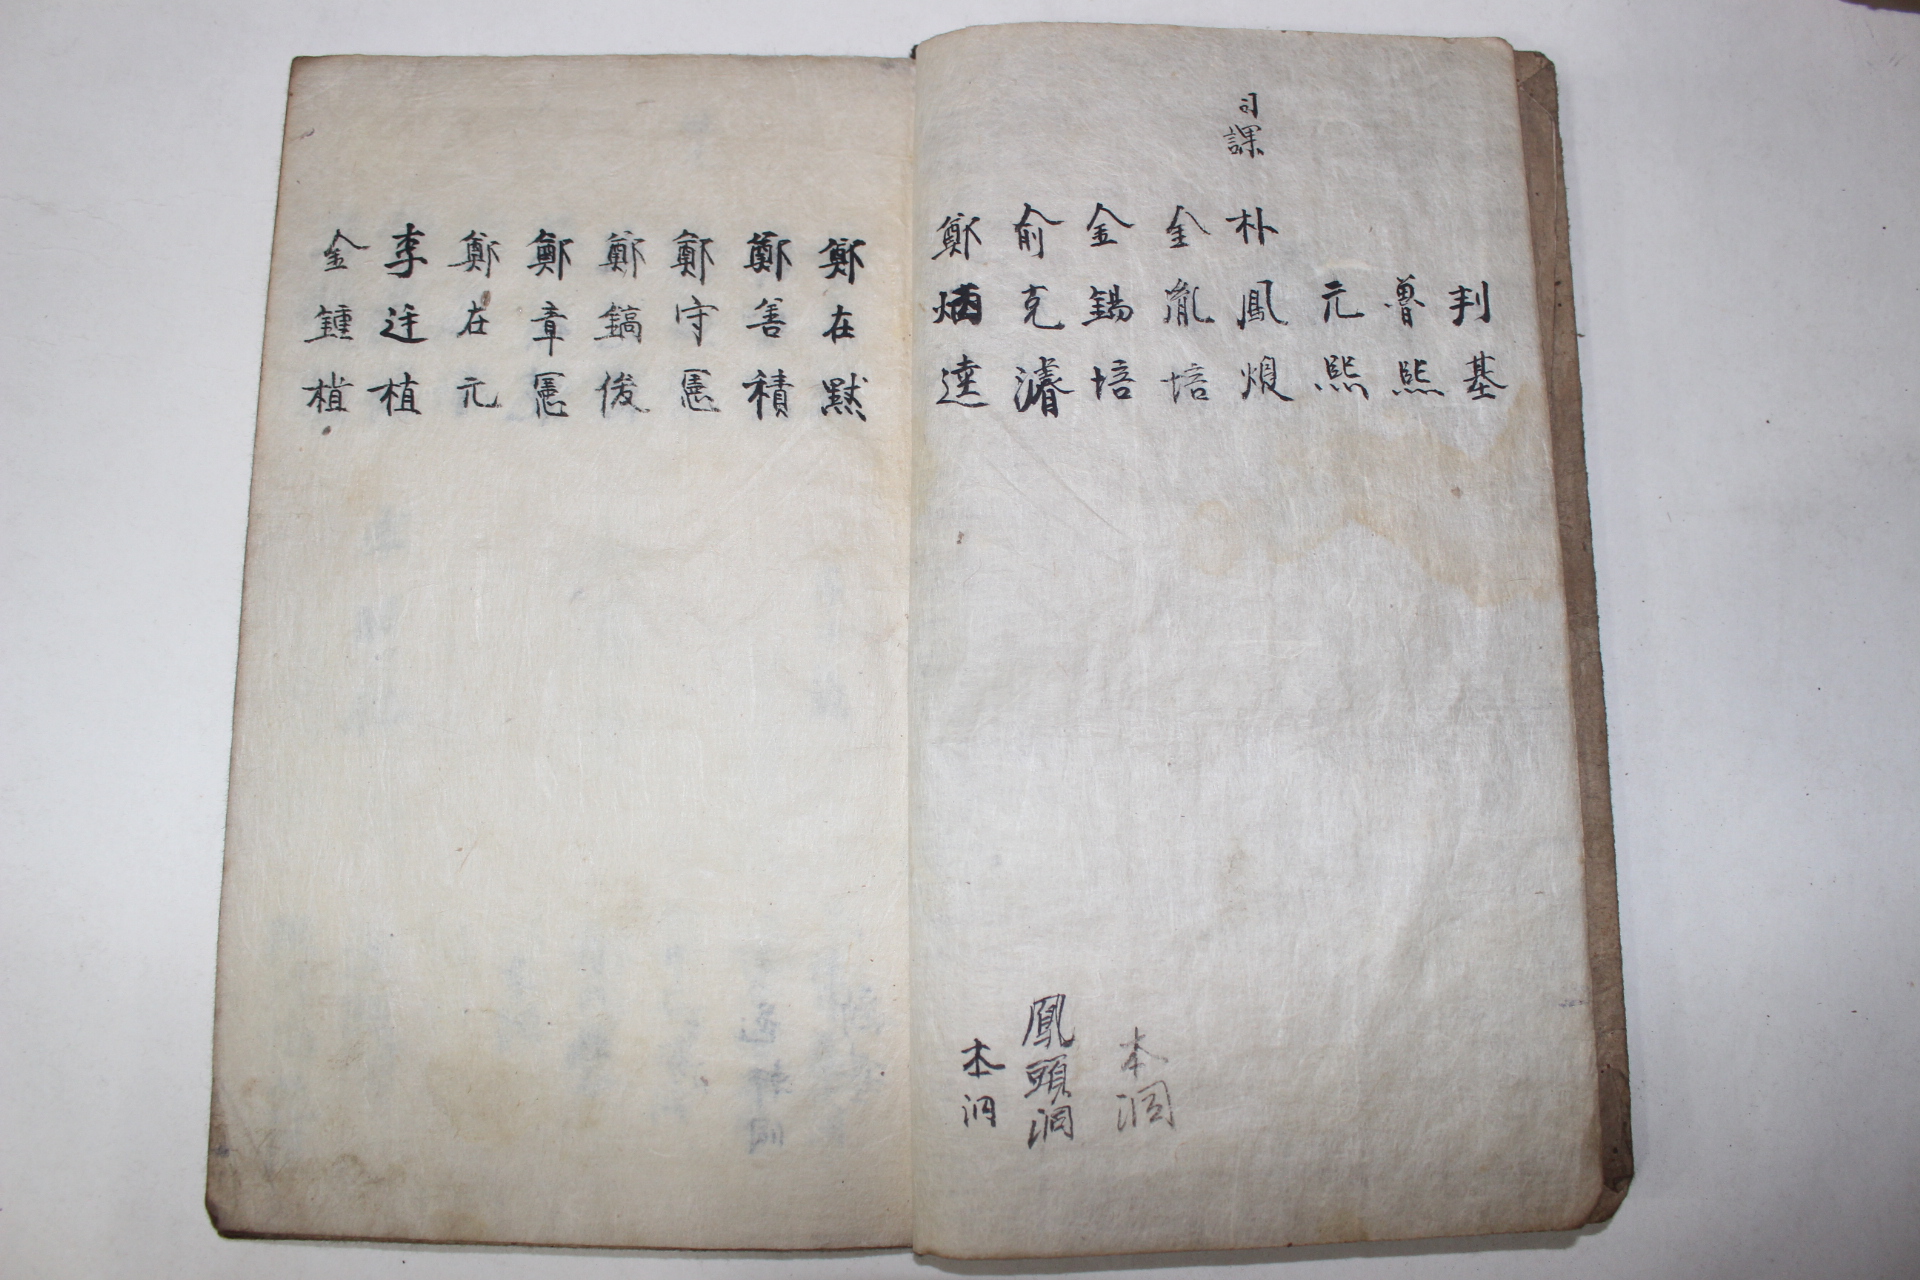 判基
魯熙
元熙
司課
朴鳳煅
金胤培
金錫培
本洞
俞克濬
鳳頭洞
鄭炳逵
本洞
鄭在默
鄭善積
鄭守憲
鄭鎬俊
鄭章憲
鄭在元
李廷植
金鍾植